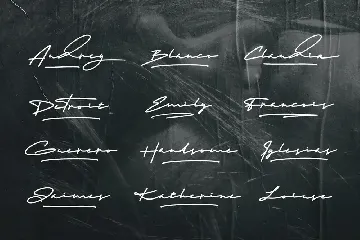 Audrey Blanco Claudia
Detroit Emily Francois
Guerero Handsome Iglesias
Jaimes Katherine Louise